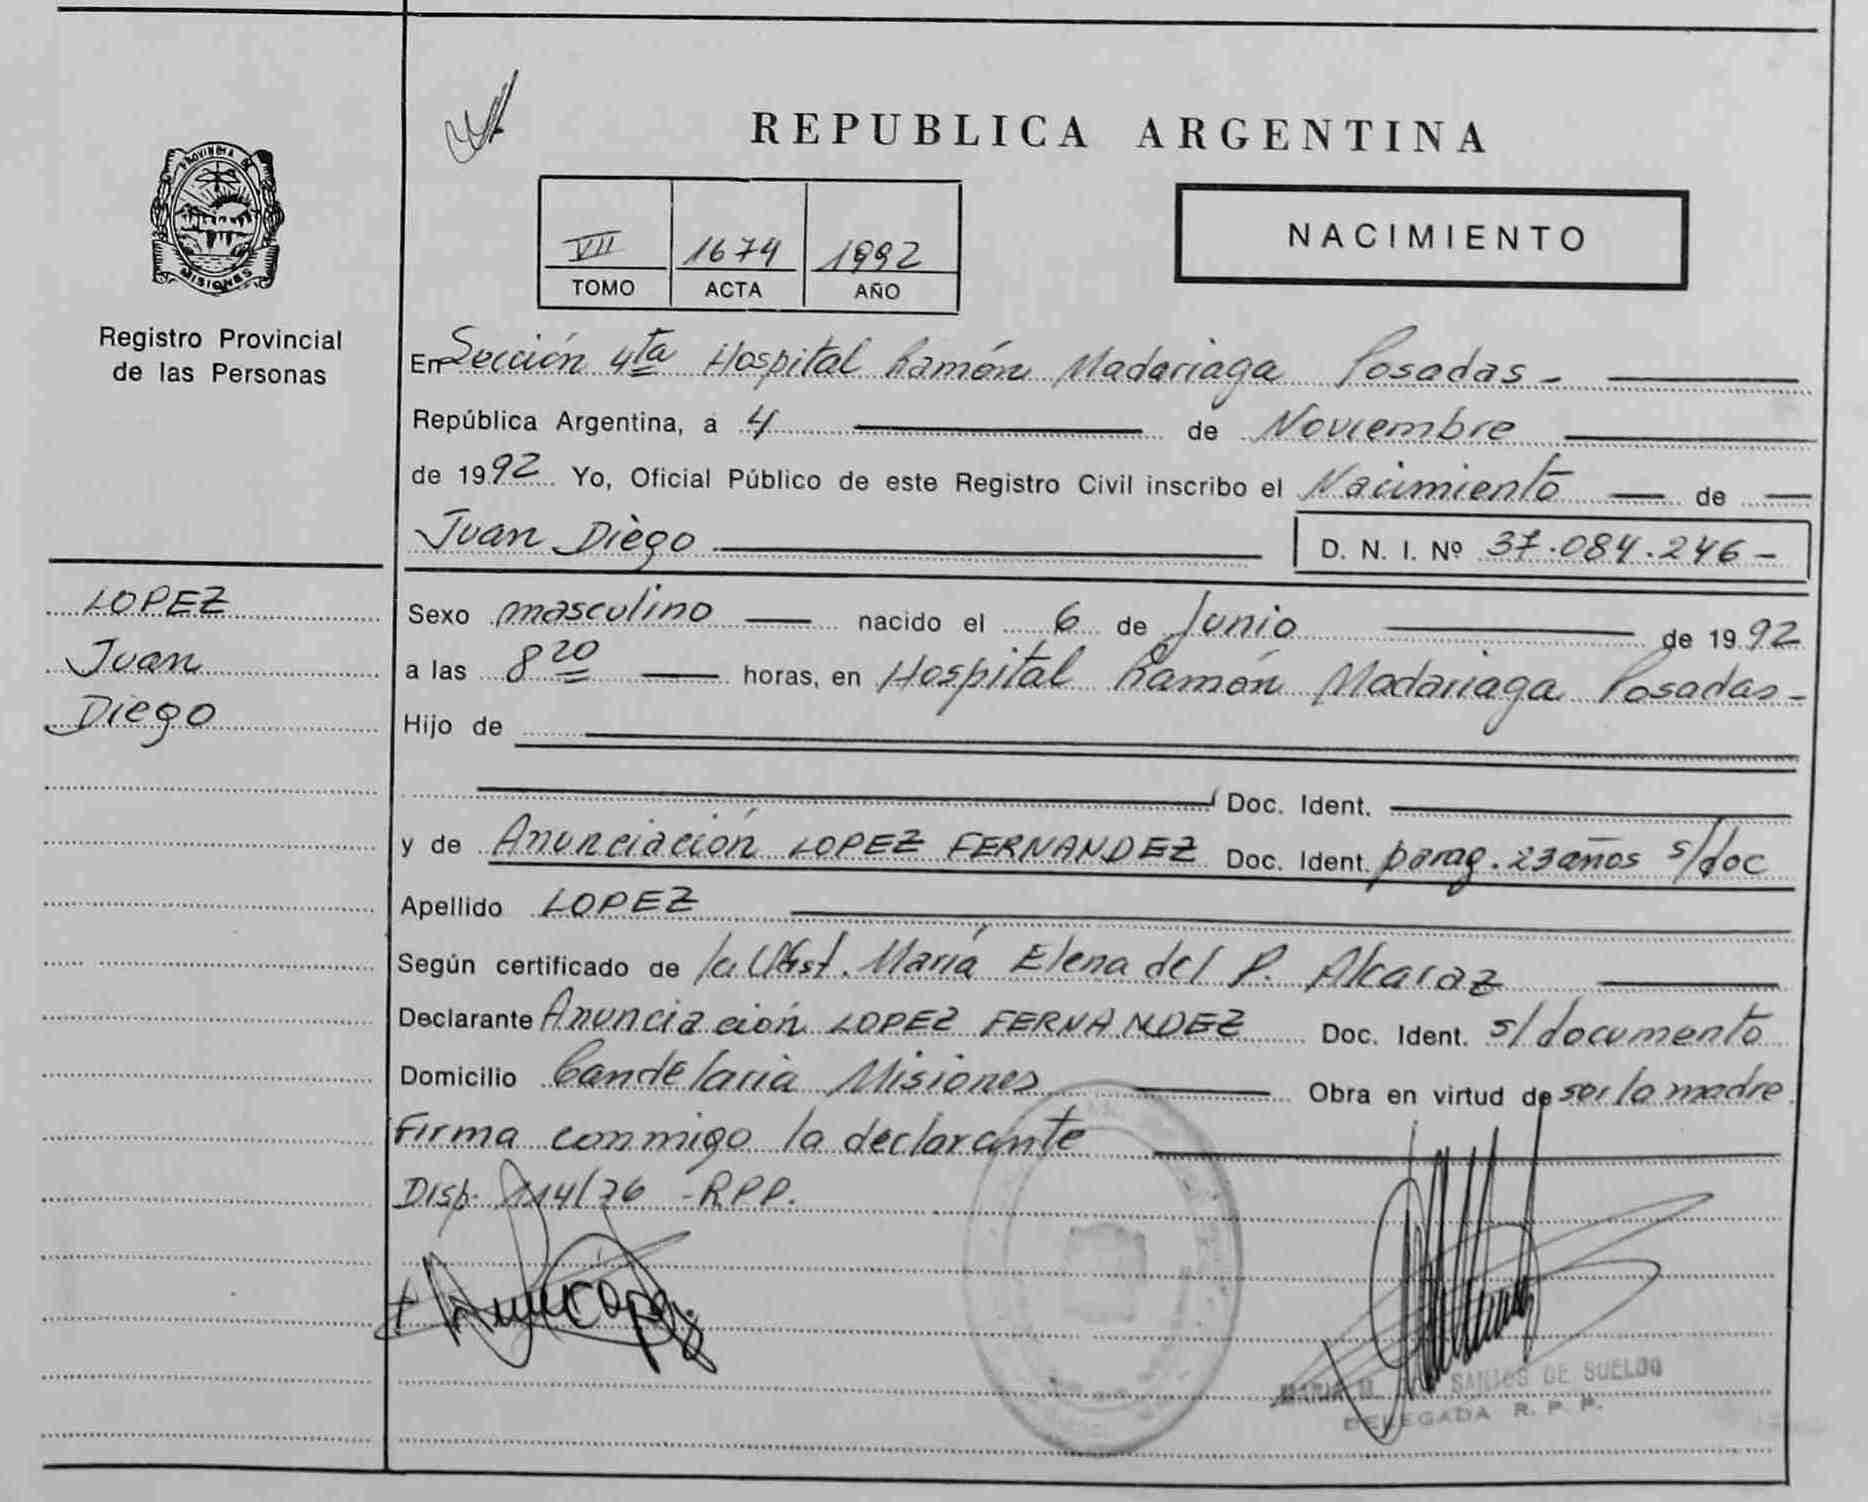 REPUBLICA ARGENTINA
PROVINCIA DE
MISIONES
Registro Provincial
de las Personas
VII 1674 1992
TOMO ACTA AÑO
NACIMIENTO
En Sección 4ta Hospital Ramón Madariaga Posadas -
República Argentina, a 4 de Noviembre
de 1992 Yo, Oficial Público de este Registro Civil inscribo el Nacimiento de
Juan Diego D. N. I. Nº 37.084.246 -
LOPEZ
Juan
Diego
Sexo masculino nacido el 6 de Junio de 1992
a las 8 20 horas, en Hospital Ramón Madariaga Posadas -
Hijo de
Doc. Ident.
y de Anunciación LOPEZ FERNANDEZ Doc. Ident. parag. 23 años s/doc
Apellido LOPEZ
Según certificado de la Obst. María Elena del P. Alcaraz
Declarante Anunciación LOPEZ FERNANDEZ Doc. Ident. s/documento
Domicilio Candelaria Misiones Obra en virtud de ser la madre.
Firma conmigo la declarante
Disp. 114/76 - R.P.P.
MARIA SANTOS DE SUELDO
DELEGADA R. P. P.